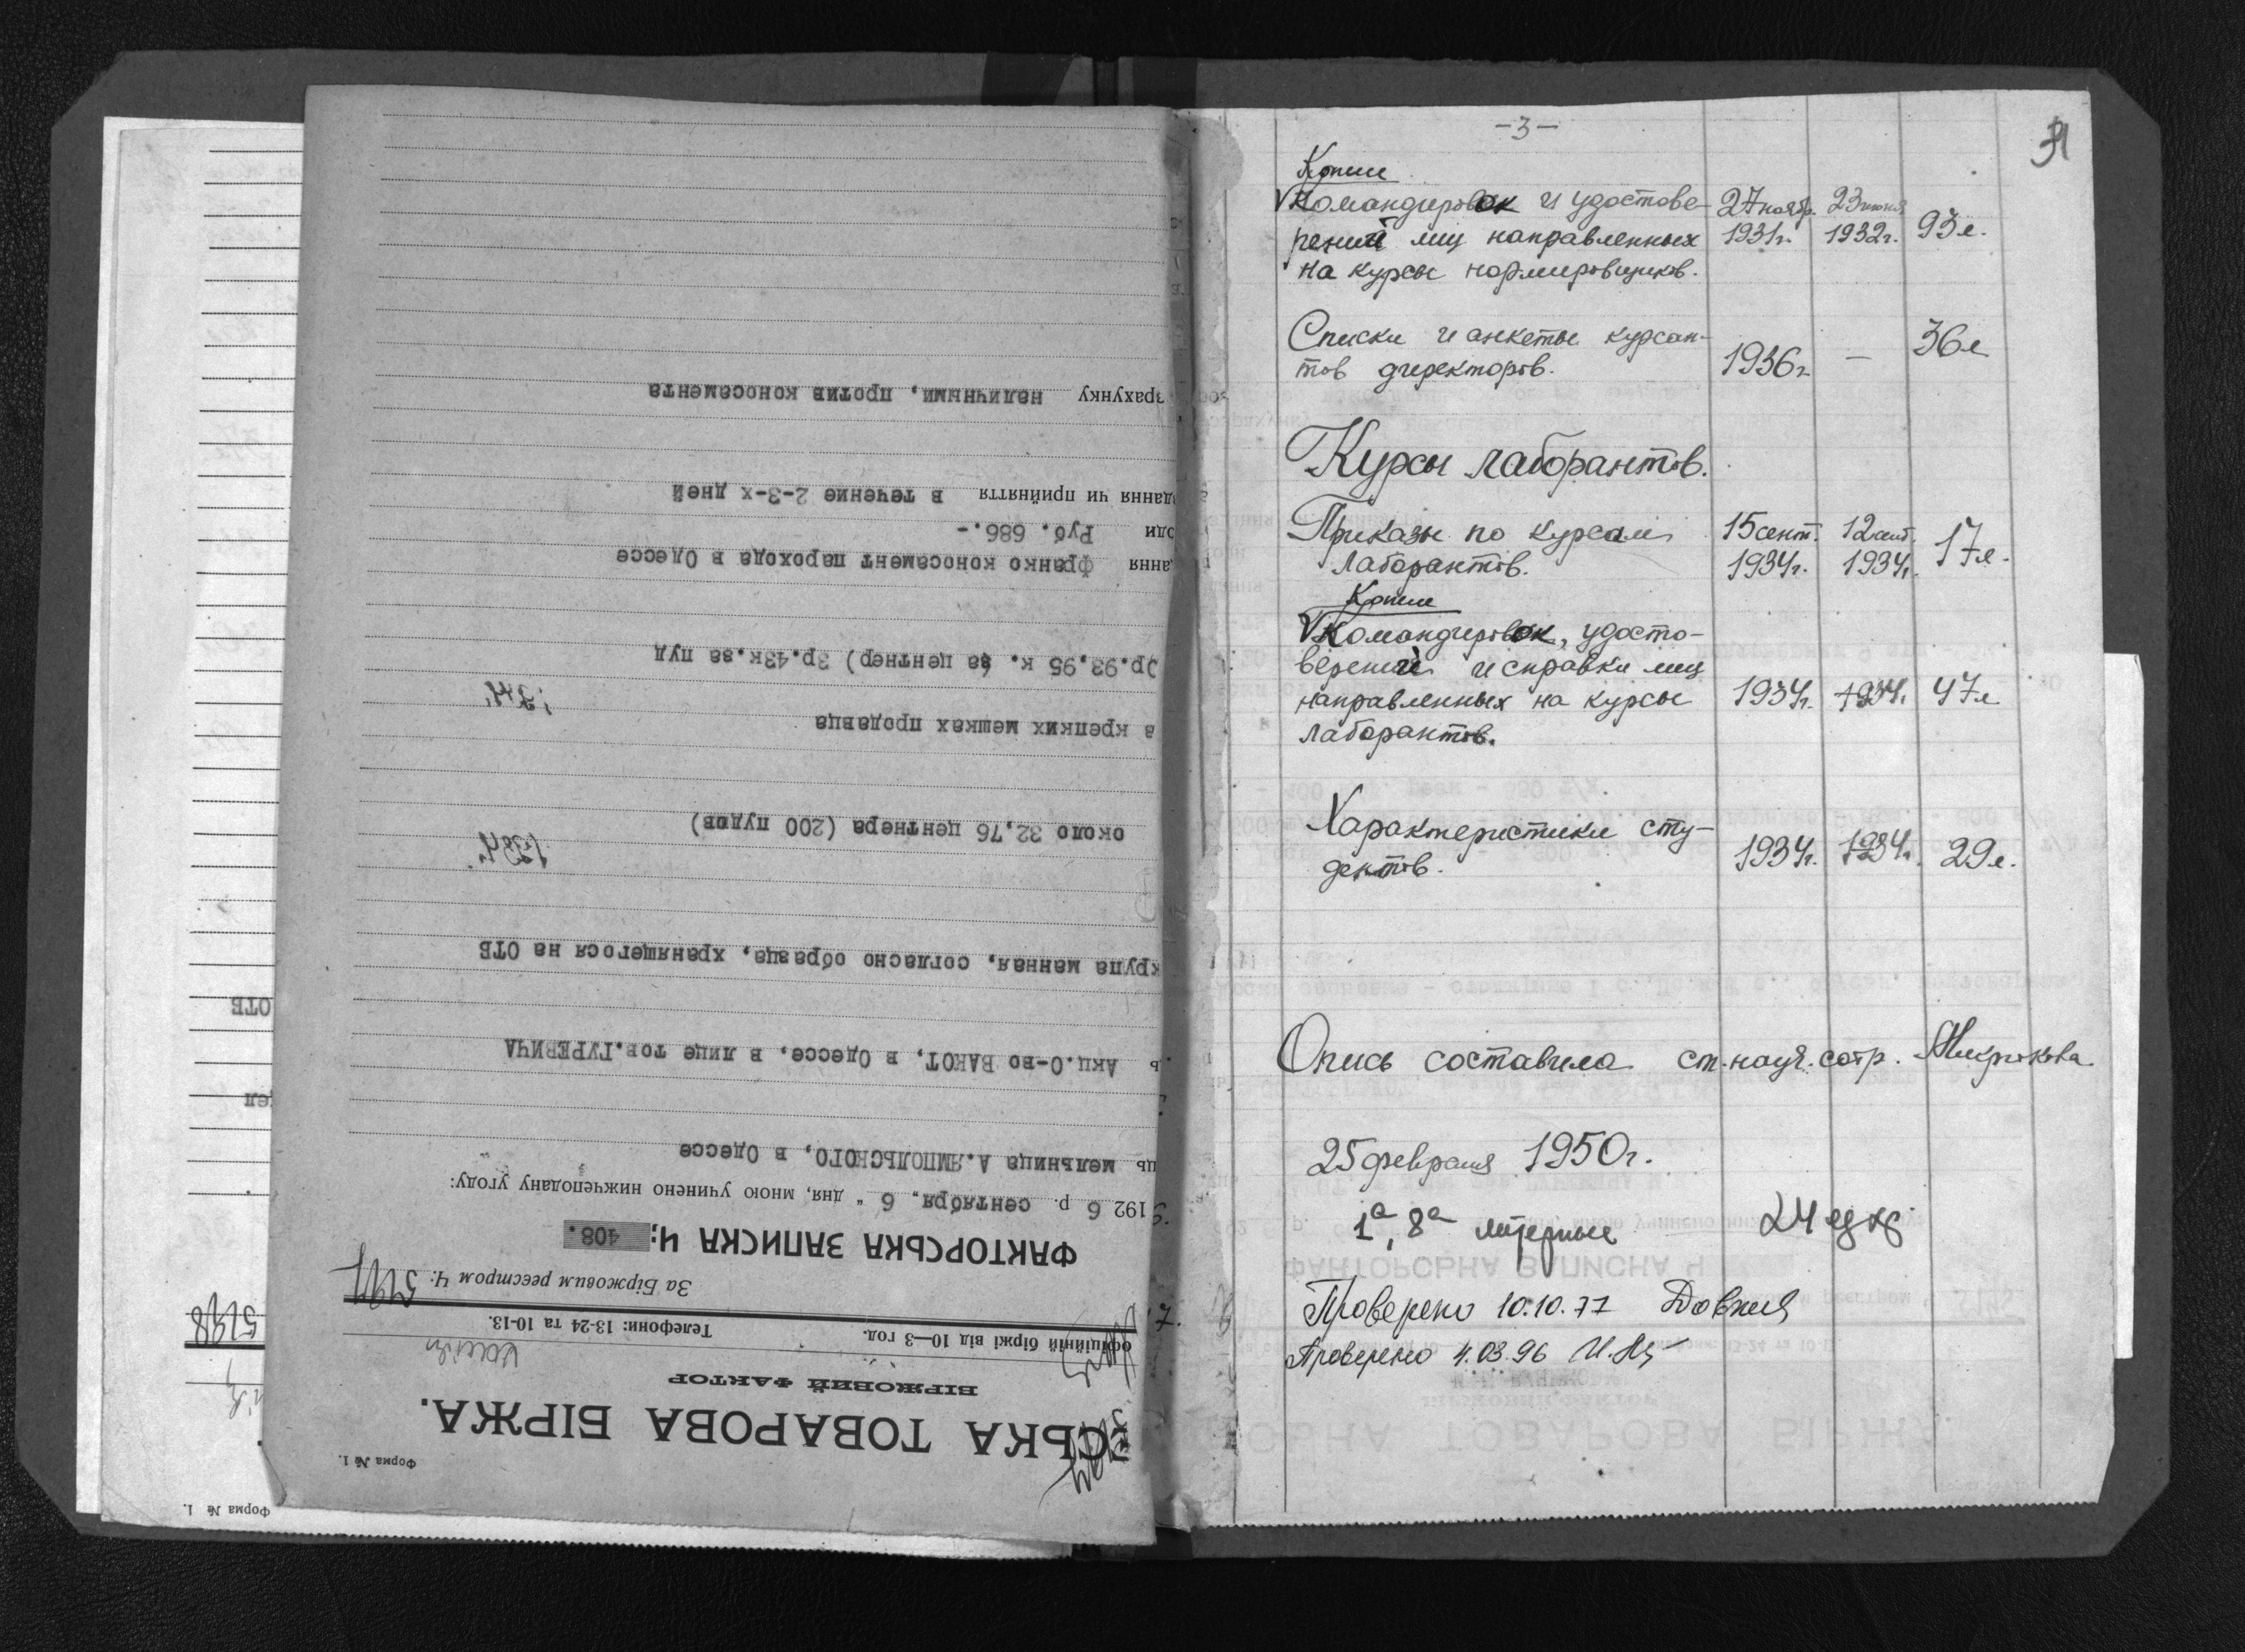 -3-
Копии
Командировок и удостове- 27 ноябр. 23 июня
рений лиц направленных 1931г. 1932г. 93л.
на курсы нормировщиков.
Списки и анкеты курсан- 36л
тов директоров. 1936г —
Курсы лаборантов.
Приказы по курсам 15 сент. 12 сент. 17л.
лаборантов. 1934г. 1934г.
Копии
Командировок, удосто-
верений и справки лиц
направленных на курсы 1934г. 1934г. 47л
лаборантов.
Характеристики сту-
дентов. 1934г. 1934г. 29л.
Опись составила ст. науч. сотр.
25 февраля 1950г.
1а, 8а литерные
Проверено 10.10.77
Проверено 4.03.96
Форма № 1.
СЬКА ТОВАРОВА БІРЖА.
БІРЖОВИЙ ФАКТОР
офіційній біржі від 10—3 год. Телефони: 13-24 та 10-13.
За Біржовим реєстром Ч.
ФАКТОРСЬКА ЗАПИСКА Ч: 408.
192 6 р. сентября. 6 " дня, мною учинено нижчеподану угоду:
ць мельница А.ЯМПОЛЬСКОГО, в Одессе
ь Акц.О-во ВАКОТ, в Одессе, в лице тов.ГУРЕВИЧА
крупа манная, согласно образца, хранящегося на ОТБ
около 32,76 центнера (200 пудов)
в крепких мешках продавца
р.93,95 к. (за центнер) 3р.43к.за пуд
дання франко коносамент парохода в Одессе
оди Руб. 686.-
дання чи прийняття в течение 2-3-х дней
зрахунку наличными, против коносамента
ОТБ
5198
Форма № 1.